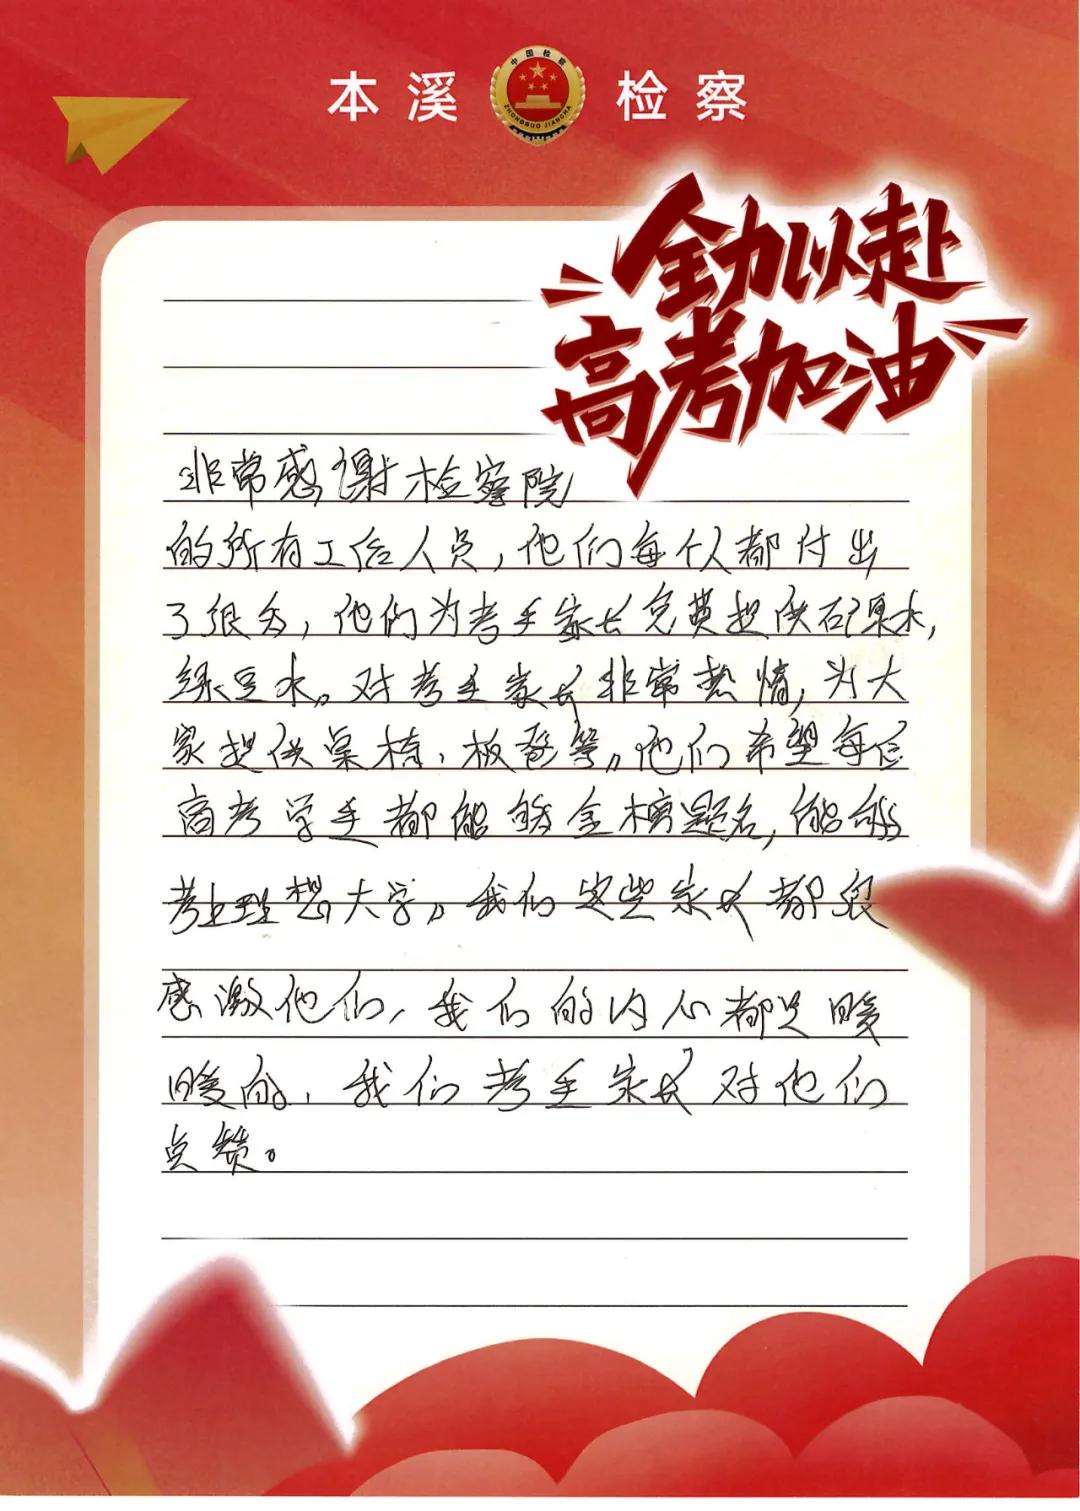 本溪 检察
中国检察
ZHONGGUO JIANCHA
全力以赴
高考加油
非常感谢检察院
的所有工作人员,他们每个人都付出
了很多,他们为考生家长免费提供矿泉水,
绿豆水。对考生家长非常热情,为大
家提供桌椅,板凳等。他们希望每位
高考学生都能够金榜题名,能够
考上理想大学。我们这些家长都很
感激他们,我们的内心都是暖
暖的,我们考生家长对他们
点赞。